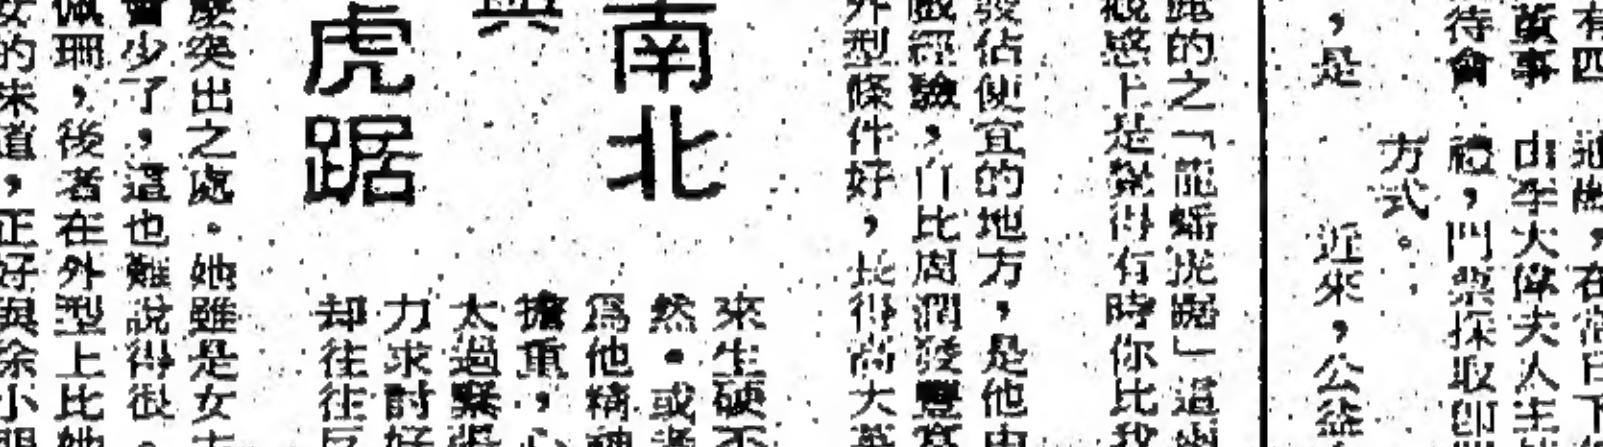 有四
董事
由李大偉夫人主
待會
禮，門票採取
方式。
，是
近來，公益
的之「龍蟠虎踞」這
觀感上是覺得有時你比我
發佔便宜的地方，是他由
戲經驗，自比周潤發豐富
外型條件好，長得高大英
南北
與
虎踞
來生硬不
然。或
為他精神
擔重，心
太過緊張
力求討好
却往往反
麼突出之處。她雖是女主
會少了，這也難說得很。
佩珊，後者在外型上比她
安的味道，正好與余小